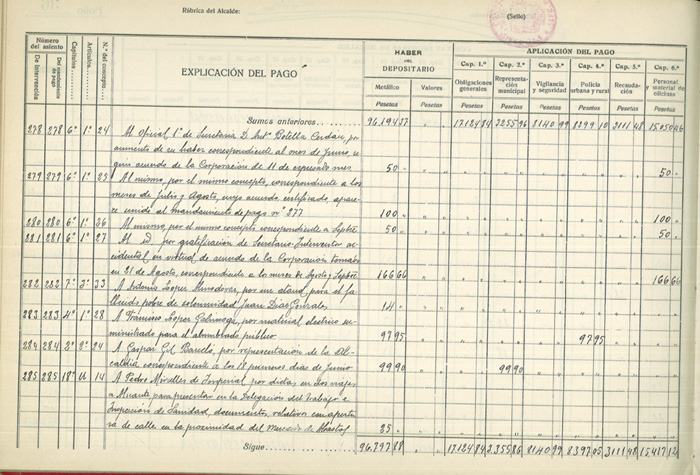 Rúbrica del Alcalde:
(Sello)
Número del asiento
De intervención
Del mandamiento de pago
Capítulos
Artículos
N.º del concepto
EXPLICACIÓN DEL PAGO
HABER DEL DEPOSITARIO
Metálico Valores
Pesetas Pesetas
APLICACIÓN DEL PAGO
Cap. 1.º Cap. 2.º Cap. 3.º Cap. 4.º Cap. 5.º Cap. 6.º
Obligaciones generales
Representación municipal
Vigilancia y seguridad
Policía urbana y rural
Recaudación
Personal y material de oficinas
Pesetas Pesetas Pesetas Pesetas Pesetas Pesetas
Sumas anteriores 96.194 37 17124 84 3255 96 8140 99 8299 10 3111 48 15050 46
278 278 6º 1º 24 Al oficial 1º de Secretaría D. Antº Botella Cerdán, por
aumento de su haber correspondiente al mes de Junio, se
gún acuerdo de la Corporación de 11 de expresado mes 50 50
279 279 6º 1º 25 Al mismo, por el mismo concepto, correspondiente a los
meses de Julio y Agosto, cuyo acuerdo certificado, apare
ce unido al mandamiento de pago nº 277 100 100
280 280 6º 1º 26 Al mismo, por el mismo concepto correspondiente a Sepbre 50 50
281 281 6º 1º 27 Al id por gratificación de Secretario Interventor ac
cidental, en virtud de acuerdo de la Corporación tomado
en 21 de Agosto, correspondiente a los meses de Agosto y Sepbre 166 66 166 66
282 282 7º 3º 33 A Antonio López Almodovar, por un ataud para el fa
llecido pobre de solemnidad Juan Díaz 14
283 283 4º 1º 28 A Francisco López por material electrico su
ministrado para el alumbrado público 97 95 97 95
284 284 2º 2º 24 A Gaspar Gil Barceló, por representación de la Al
caldía correspondiente a los 18 primeros días de Junio 99 90 99 90
285 285 18º U 14 A Pedro Miralles de Imperial, por dietas en dos viajes
a Alicante para presentar en la Delegación del Trabajo e
Inspección de Sanidad, documentos, relativos con apertu
ra de calle en la proximidad del 25
Sigue 96.797 88 17124 84 3355 86 8140 99 8397 05 3111 48 15417 12